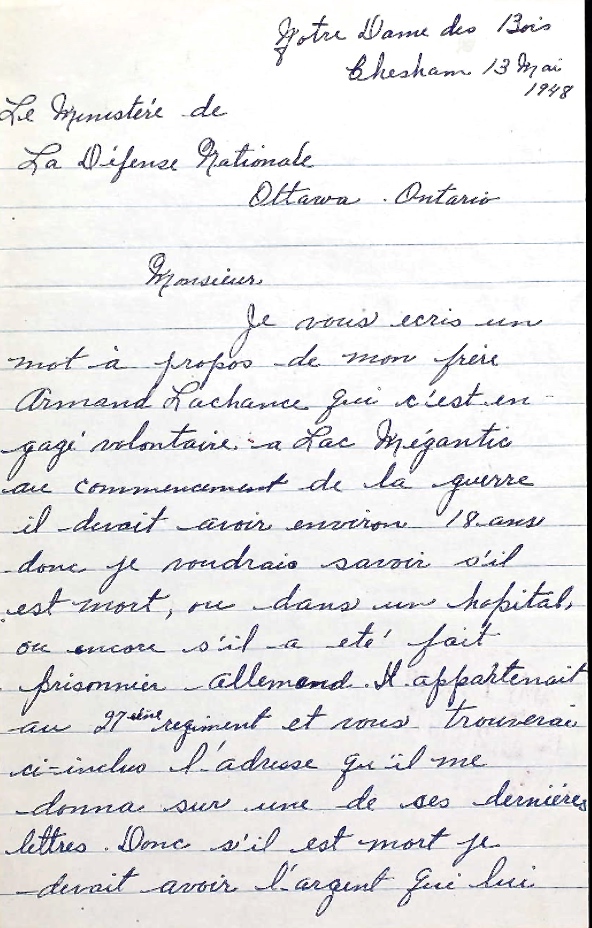 Notre Dame des Bois
Chesham 13 Mai
1948
Le Ministére de
La Défense Nationale
Ottawa. Ontario
Monsieur,
Je vous ecris un
mot à propos de mon frère
Armand Lachance qui c'est en-
gagé volontaire a Lac Mégantic
au commencement de la guerre
il devait avoir environ 18 ans
donc je voudrais savoir s'il
est mort, ou dans un hopital,
ou encore s'il a eté fait
prisonnier allemand. Il appartenait
au 27ième regiment et vous trouverai
ci-inclus l'adresse qu'il me
donna sur une de ses dernières
lettres. Donc s'il est mort je
devait avoir l'argent qui lui